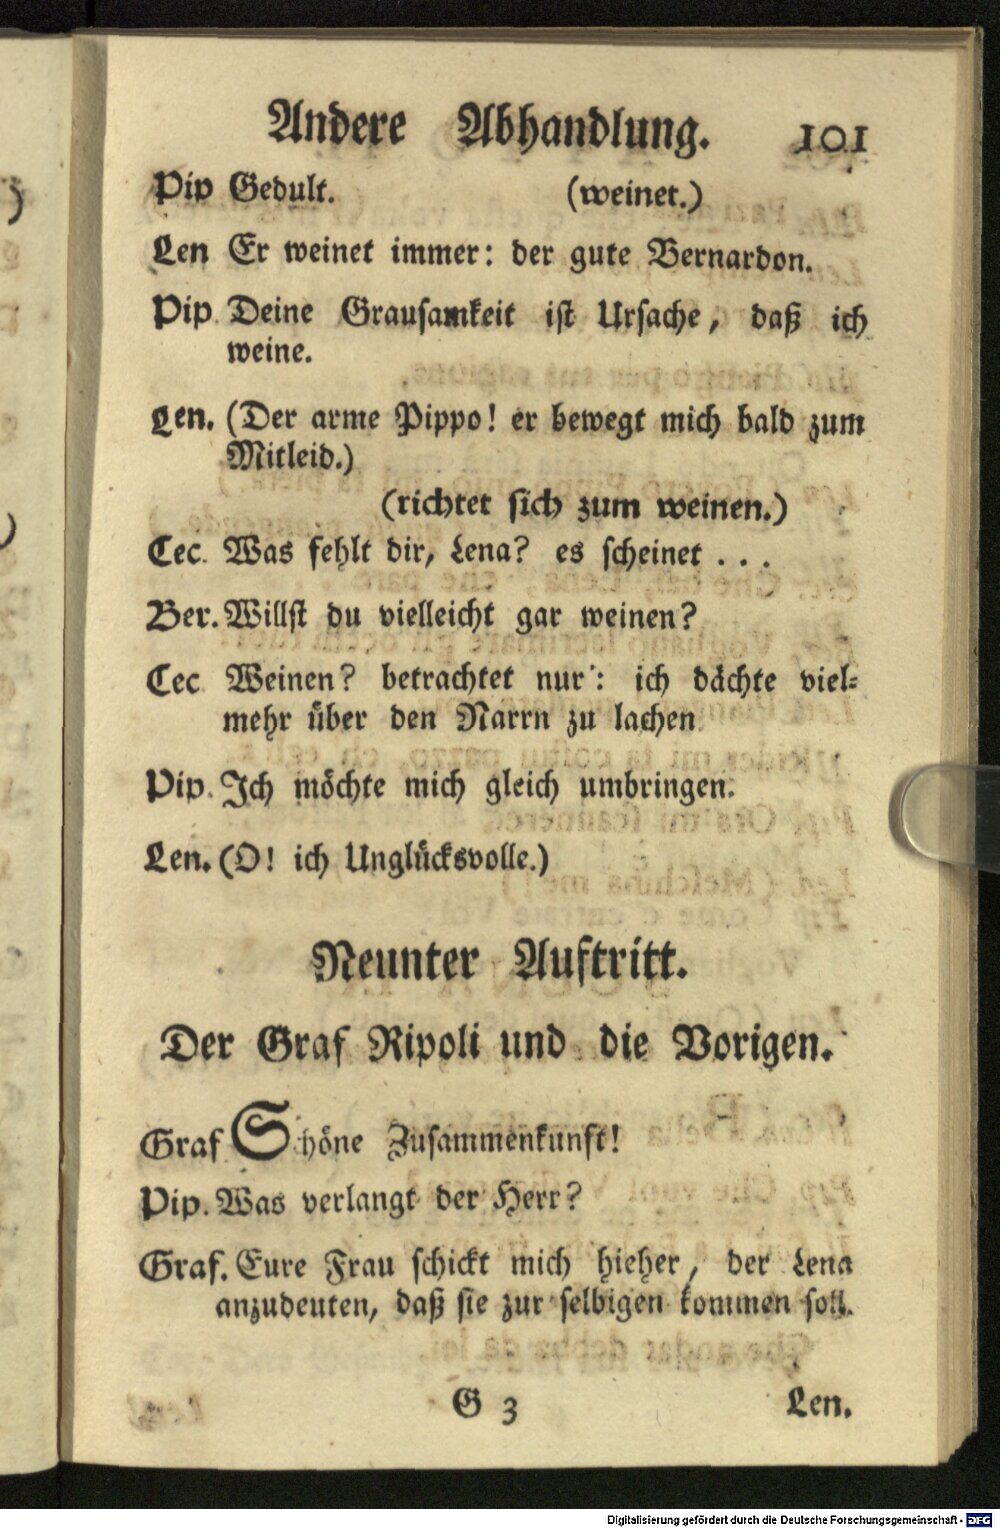 Andere Abhandlung. 101
Pip Gedult. (weinet.)
Len Er weinet immer: der gute Bernardon.
Pip Deine Grausamkeit ist Ursache, daß ich
weine.
Len. (Der arme Pippo! er bewegt mich bald zum
Mitleid.)
(richtet sich zum weinen.)
Cec. Was fehlt dir, Lena? es scheinet . . .
Ber. Willst du vielleicht gar weinen?
Cec Weinen? betrachtet nur: ich dächte viel=
mehr über den Narrn zu lachen
Pip. Ich möchte mich gleich umbringen.
Len. (O! ich Unglücksvolle.)
Neunter Auftritt.
Der Graf Ripoli und die Vorigen.
Graf Schöne Zusammenkunft!
Pip. Was verlangt der Herr?
Graf. Eure Frau schickt mich hieher, der Lena
anzudeuten, daß sie zur selbigen kommen soll.
G 3 Len.
Digitalisierung gefördert durch die Deutsche Forschungsgemeinschaft - DFG